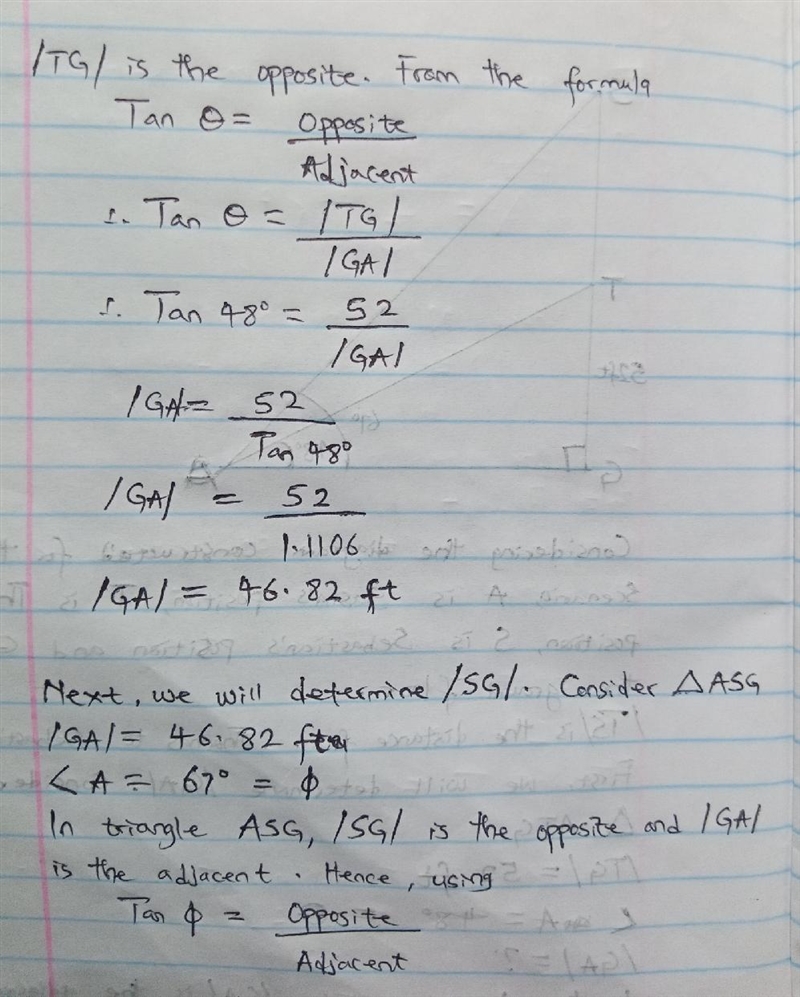 /TG/ is the opposite. From the formula
Tan θ = Opposite
Adjacent
∴ Tan θ = /TG/
/GA/
∴ Tan 48° = 52
/GA/
/GA/ = 52
Tan 48°
/GA/ = 52
1.1106
/GA/ = 46.82 ft
Next, we will determine /SG/. Consider △ ASG
/GA/ = 46.82 ft
∠ A = 67° = ϕ
In triangle ASG, /SG/ is the opposite and /GA/
is the adjacent. Hence, using
Tan ϕ = Opposite
Adjacent